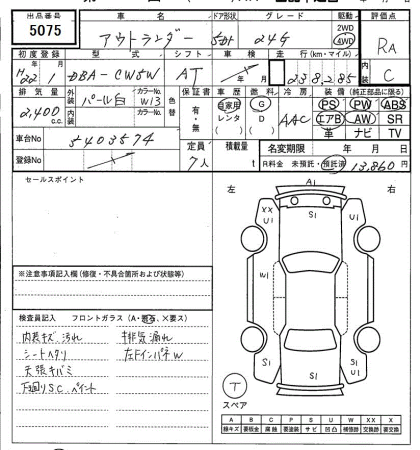 出品番号 車名 ドア形状 グレード 駆動 評価点
5075 アウトランダー 5 24G 2WD 4WD RA
初度登録 型式 シフト 車検 走行(km・マイル) 内装
H22年 1月 DBA-CW5W AT 年 月 238,285 C
排気量 外装 カラーNo. 色替 保証書 車歴 燃料 冷房 装備(純正部品に限る)
2,400 c.c. パール白 W13 有・無 自家用 レンタ G D AAC PS PW ABS
内装 カラーNo. エアB AW SR
革 ナビ TV
車台No 5403574 定員 積載量 名変期限 年 月 日
登録No 7人 t R料金 未預託・預託済 13,860円
セールスポイント 左 右
A1
XX U1 S1 U1
※注意事項記入欄(修復・不具合箇所および状態等)
W1 S1
検査員記入 フロントガラス(A・飛石、×要ス)
内装キズ、汚れ 排気漏れ
シートヘタリ 左Fインパネ W
天張キバミ
下回りS.C.ペイント
S1 U1 S1 S1 U1
T
スペア
A B C P S U W X XX
線キズ 要板金 腐蝕 要塗装 サビ 凹凸 補修跡 要交換 交換済